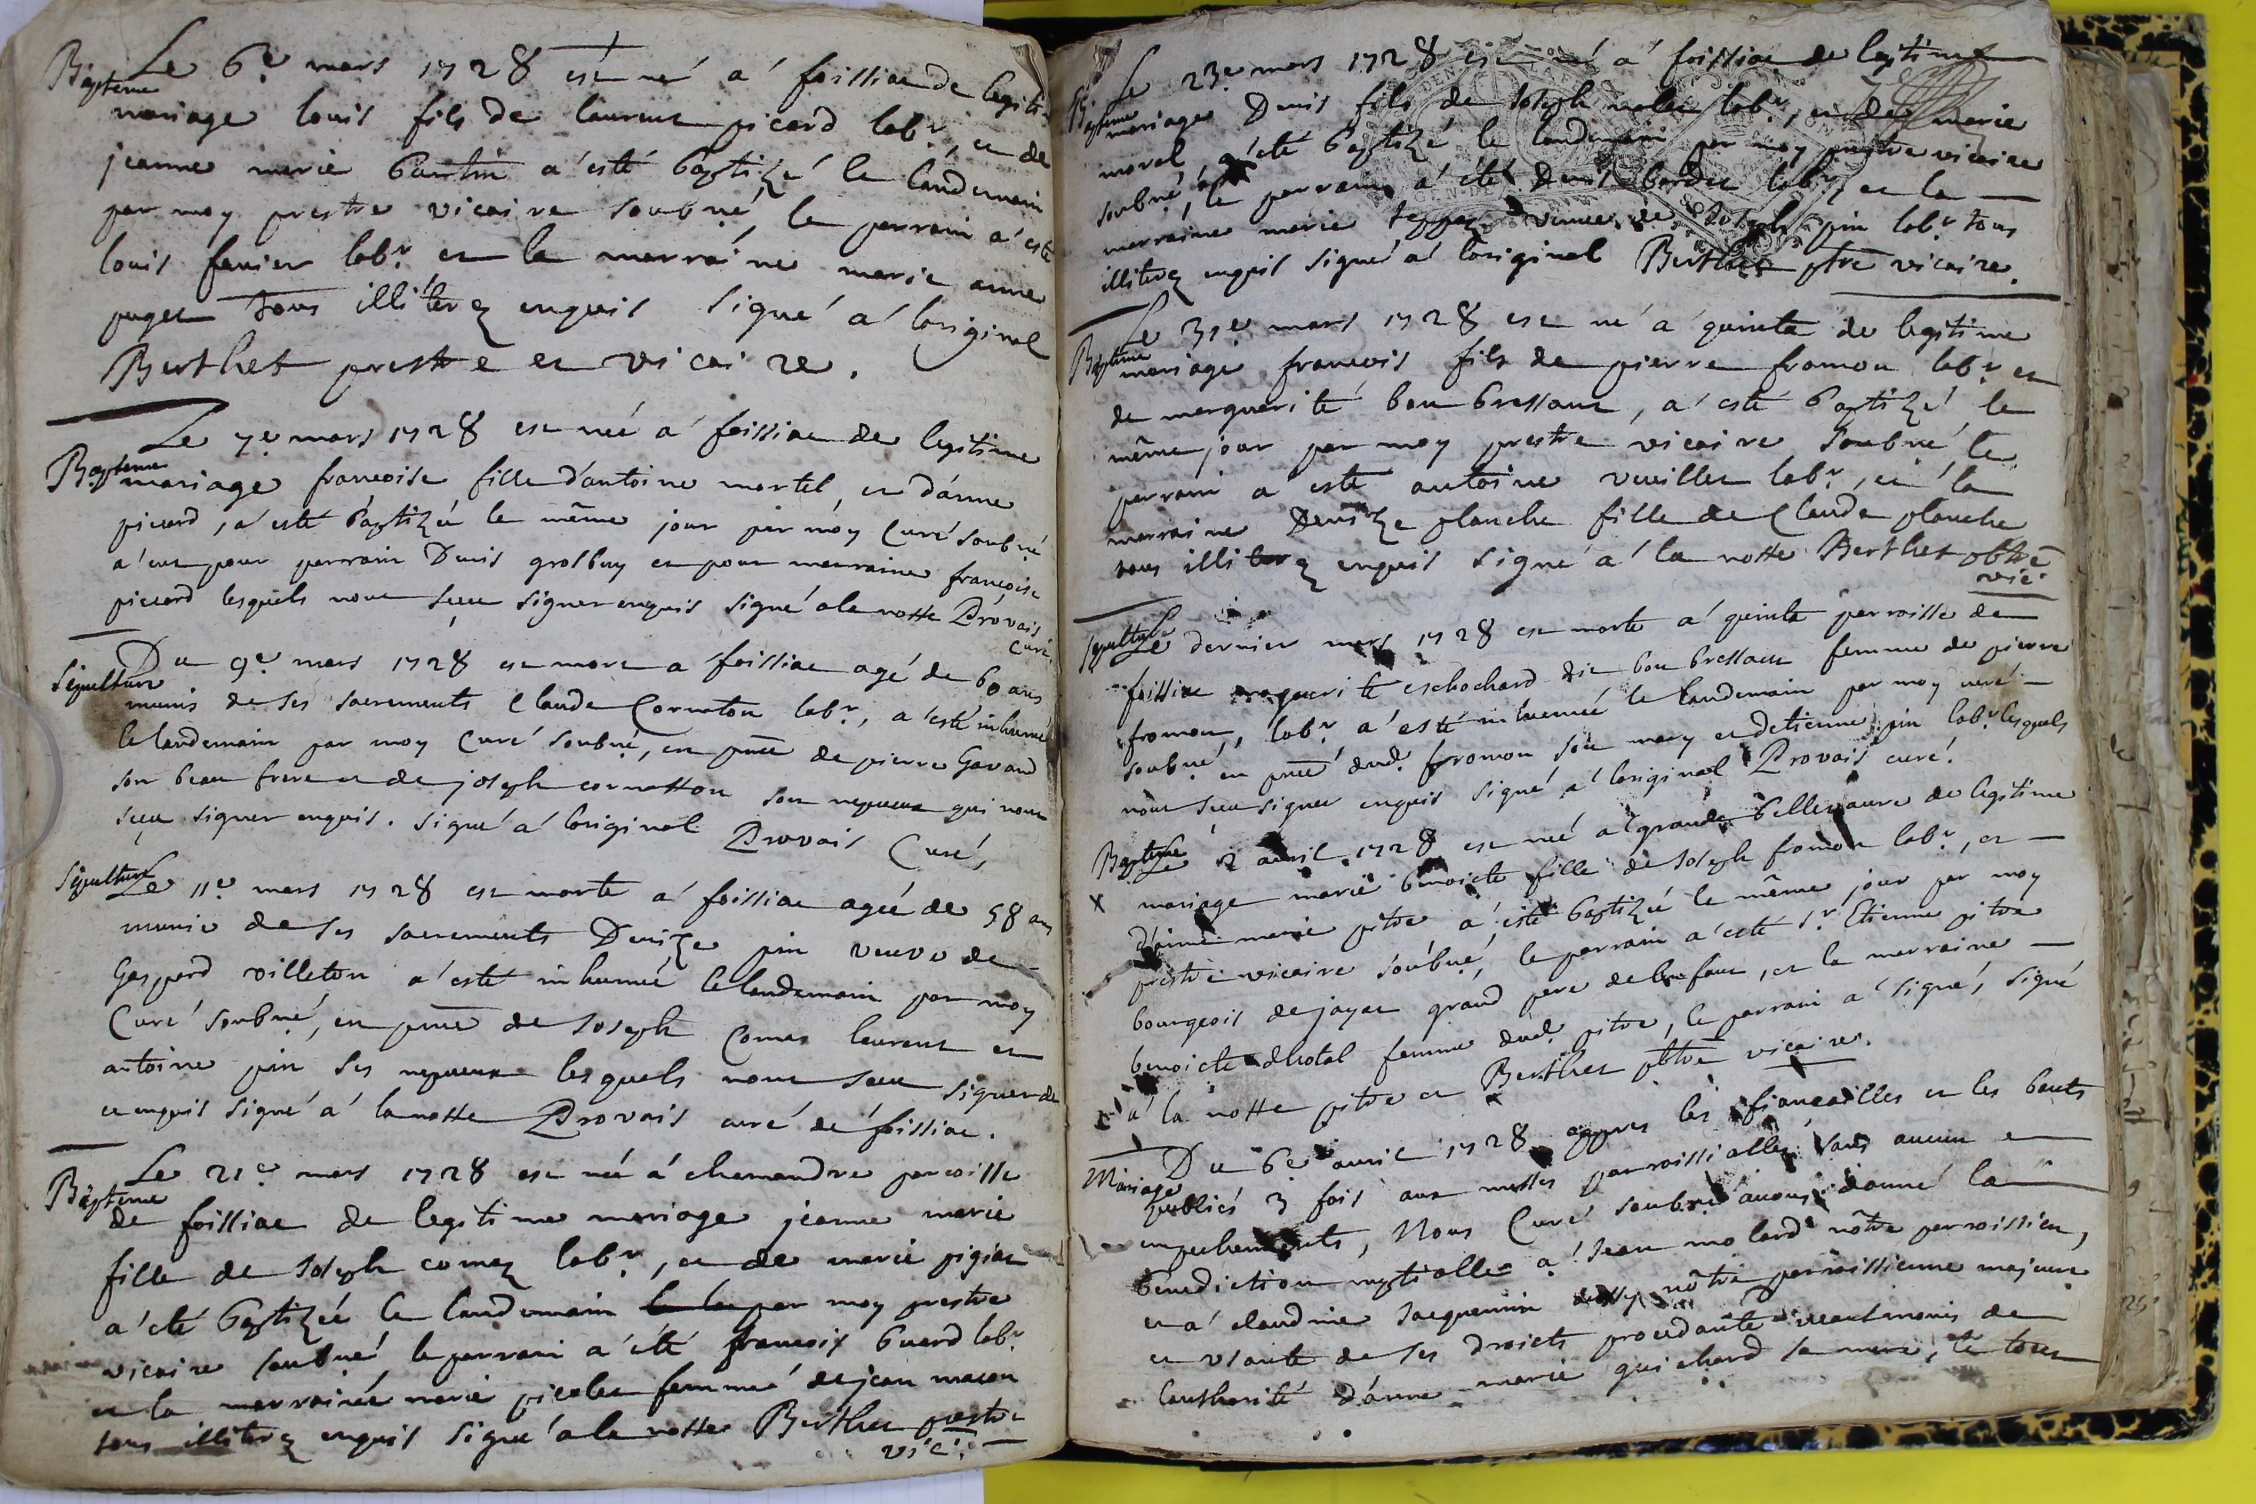 Bapteme
Le 6e mars 1728 est né a foissiac de legiti-
mariage louis fils de laurent picard labr, et de
jeanne marie bantin a esté baptizé le landemain
par moy prestre vicaire soubné, le parrain a esté
louis fenier labr et la marraine marie anne
puget tous illiterez enquis signé a loriginal
Berthet prestre et vicaire.
Bapteme
Le 7e mars 1728 est née a foissiac de legitime
mariage francoise fille d'antoine martel, et d'anne
picard, a esté baptizée le même jour par moy Curé soubné
a eut pour parrain Denis grosbuy et pour marraine françoise
picard lesquels n'ont sceu signer enquis signé a la notte Provais
Curé.
Sepulture
Du 9e mars 1728 est mort a foissiac agé de 60 ans
munis de ses sacrements Claude Cornaton labr, a esté inhumé
le landemain par moy Curé soubné, en pnce de pierre Gavand
son beau frere et de joseph cornatton son nepveux qui n'ont
sceu signer enquis. signé a loriginal Provais Curé,
Sepulture
Le 11e mars 1728 est morte a foissiac ageé de 58 ans
munie de ses sacrements Denize pin veuve de
Gaspard villeton a esté inhumeé le landemain par moy
Curé soubné, en pnce de Joseph Comas laurent et
antoine pin ses nepveux lesquels n'ont sceu signer de
ce enquis signé a la notte Provais curé de foissiac.
Bapteme
Le 21e mars 1728 est née a chamandre parroisse
de foissiac de legitime mariage jeanne marie
fille de Joseph comaz labr, et de marie pigiat
a été baptizée le landemain par moy prestre
vicaire soubné le parrain a été françois buard labr
et la marraineé marie picolet femmeé de jean macon
tous illiterez enquis signé a la notte Berthet prestre
vic.
Bapteme
Le 23e mars 1728 est né a foissiac de legitime
mariage Denis fils de Joseph nallet labr, et de marie
morel, a été baptizé le landemain par moy prestre vicaire
soubné, le parrain a été Denis bordet labr et la
marraine marie veuve de Joseph pin labr tous
illiterez enquis signé a loriginal Berthet ptre vicaire.
Bapteme
Le 31e mars 1728 est né a quinta de legitime
mariage francois fils de pierre fromon labr et
de marguerite bon bressant, a esté baptizé le
même jour par moy prestre vicaire soubné le
parrain a esté antoine vuillet labr, et la
marraine Denize planche fille de Claude planche
tous illiterez enquis signé a la notte Berthet pbtre
vic.
Sepulture
Le dernier mars 1728 est morte a quinta parroisse de
foissiac marguerite eschochard dit bon bressan femme de pierre
fromon, labr a esté inhumeé le landemain par moy curé
soubné, en pnce dud. fromon son mary et detienne pin labr lesquels
n'ont sceu signer enquis signé a loriginal Provais curé.
Bapteme
x
Le 2 avril 1728 est née a grande bellevavre de legitime
mariage marie benoicte fille de Joseph fromon labr, et
d'anne marie pitre a esté baptizée le même jour par moy
prestre vicaire soubné, le parrain a esté sr Etienne pitre
bourgeois de jayac grand pere de lenfant, et la marraine
benoicte dhotal femme dud. pitre, le parrain a signé, signé
a la notte pitre et Berthet pbtre vicaire.
Mariage
Du 6e avril 1728 appres les fiancailles et les bants
publiés 3 fois aux messes parroissialles sans aucun
empechements, Nous Curé soubné avons donné la
benediction nuptialle a Jean molard nôtre parroissien,
et a claudine Jacquemin nôtre parroissienne majeure
et usante de ses droicts procedante neantmoins de
lauthorité d'anne marie guichard sa mere, le tout